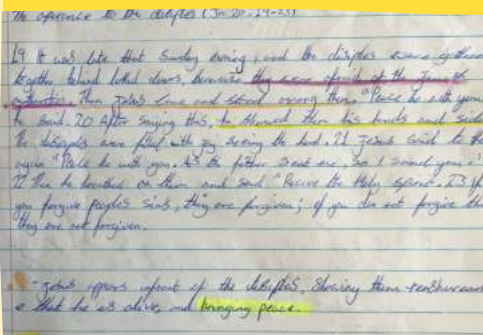 The aperence to the disiples (Jn 20:19-23)
19 It was late that Sunday evening, and the disiples were gathered
together behind locked doors, because they were afraid of the Jewish
authorities. Then Jesus came and stood among them. "Peace be with you"
he said. 20 After saying this, he showed them his hands and side
The disiples were filled with joy seeing the lord. 21 Jesus said to them
again "Peace be with you. As the father sent me, so I send you."
22 Then he breathed on them and said "Recive the Holy spirit. 23 If
you forgive people's sins, they are forgiven; if you do not forgive them
they are not forgiven.
- Jesus appears infront of the disiples, showing them
that he is alive, and bringing peace.